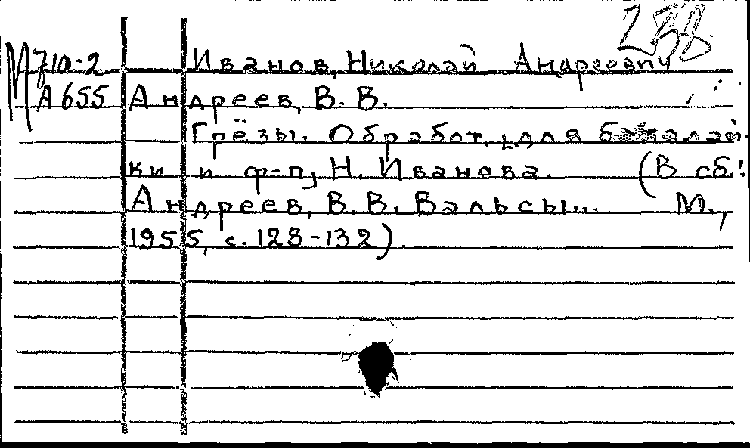 238
М710-2 Иванов, Николай Андреевич
А655 Андреев, В. В.
Грёзы. Обработ. для балалай-
ки и ф-п, Н. Иванова. (В сб.:
Андреев, В. В. Вальсы... М.,
1955, с. 128-132).